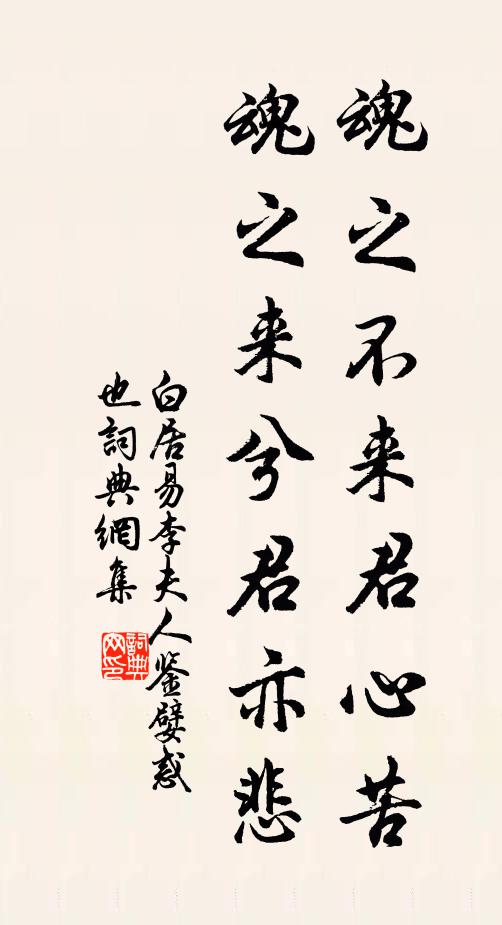 魂之不来君心苦
魂之来兮君亦悲
白居易李夫人鉴嬖惑
也詞典網集
詞典
网印